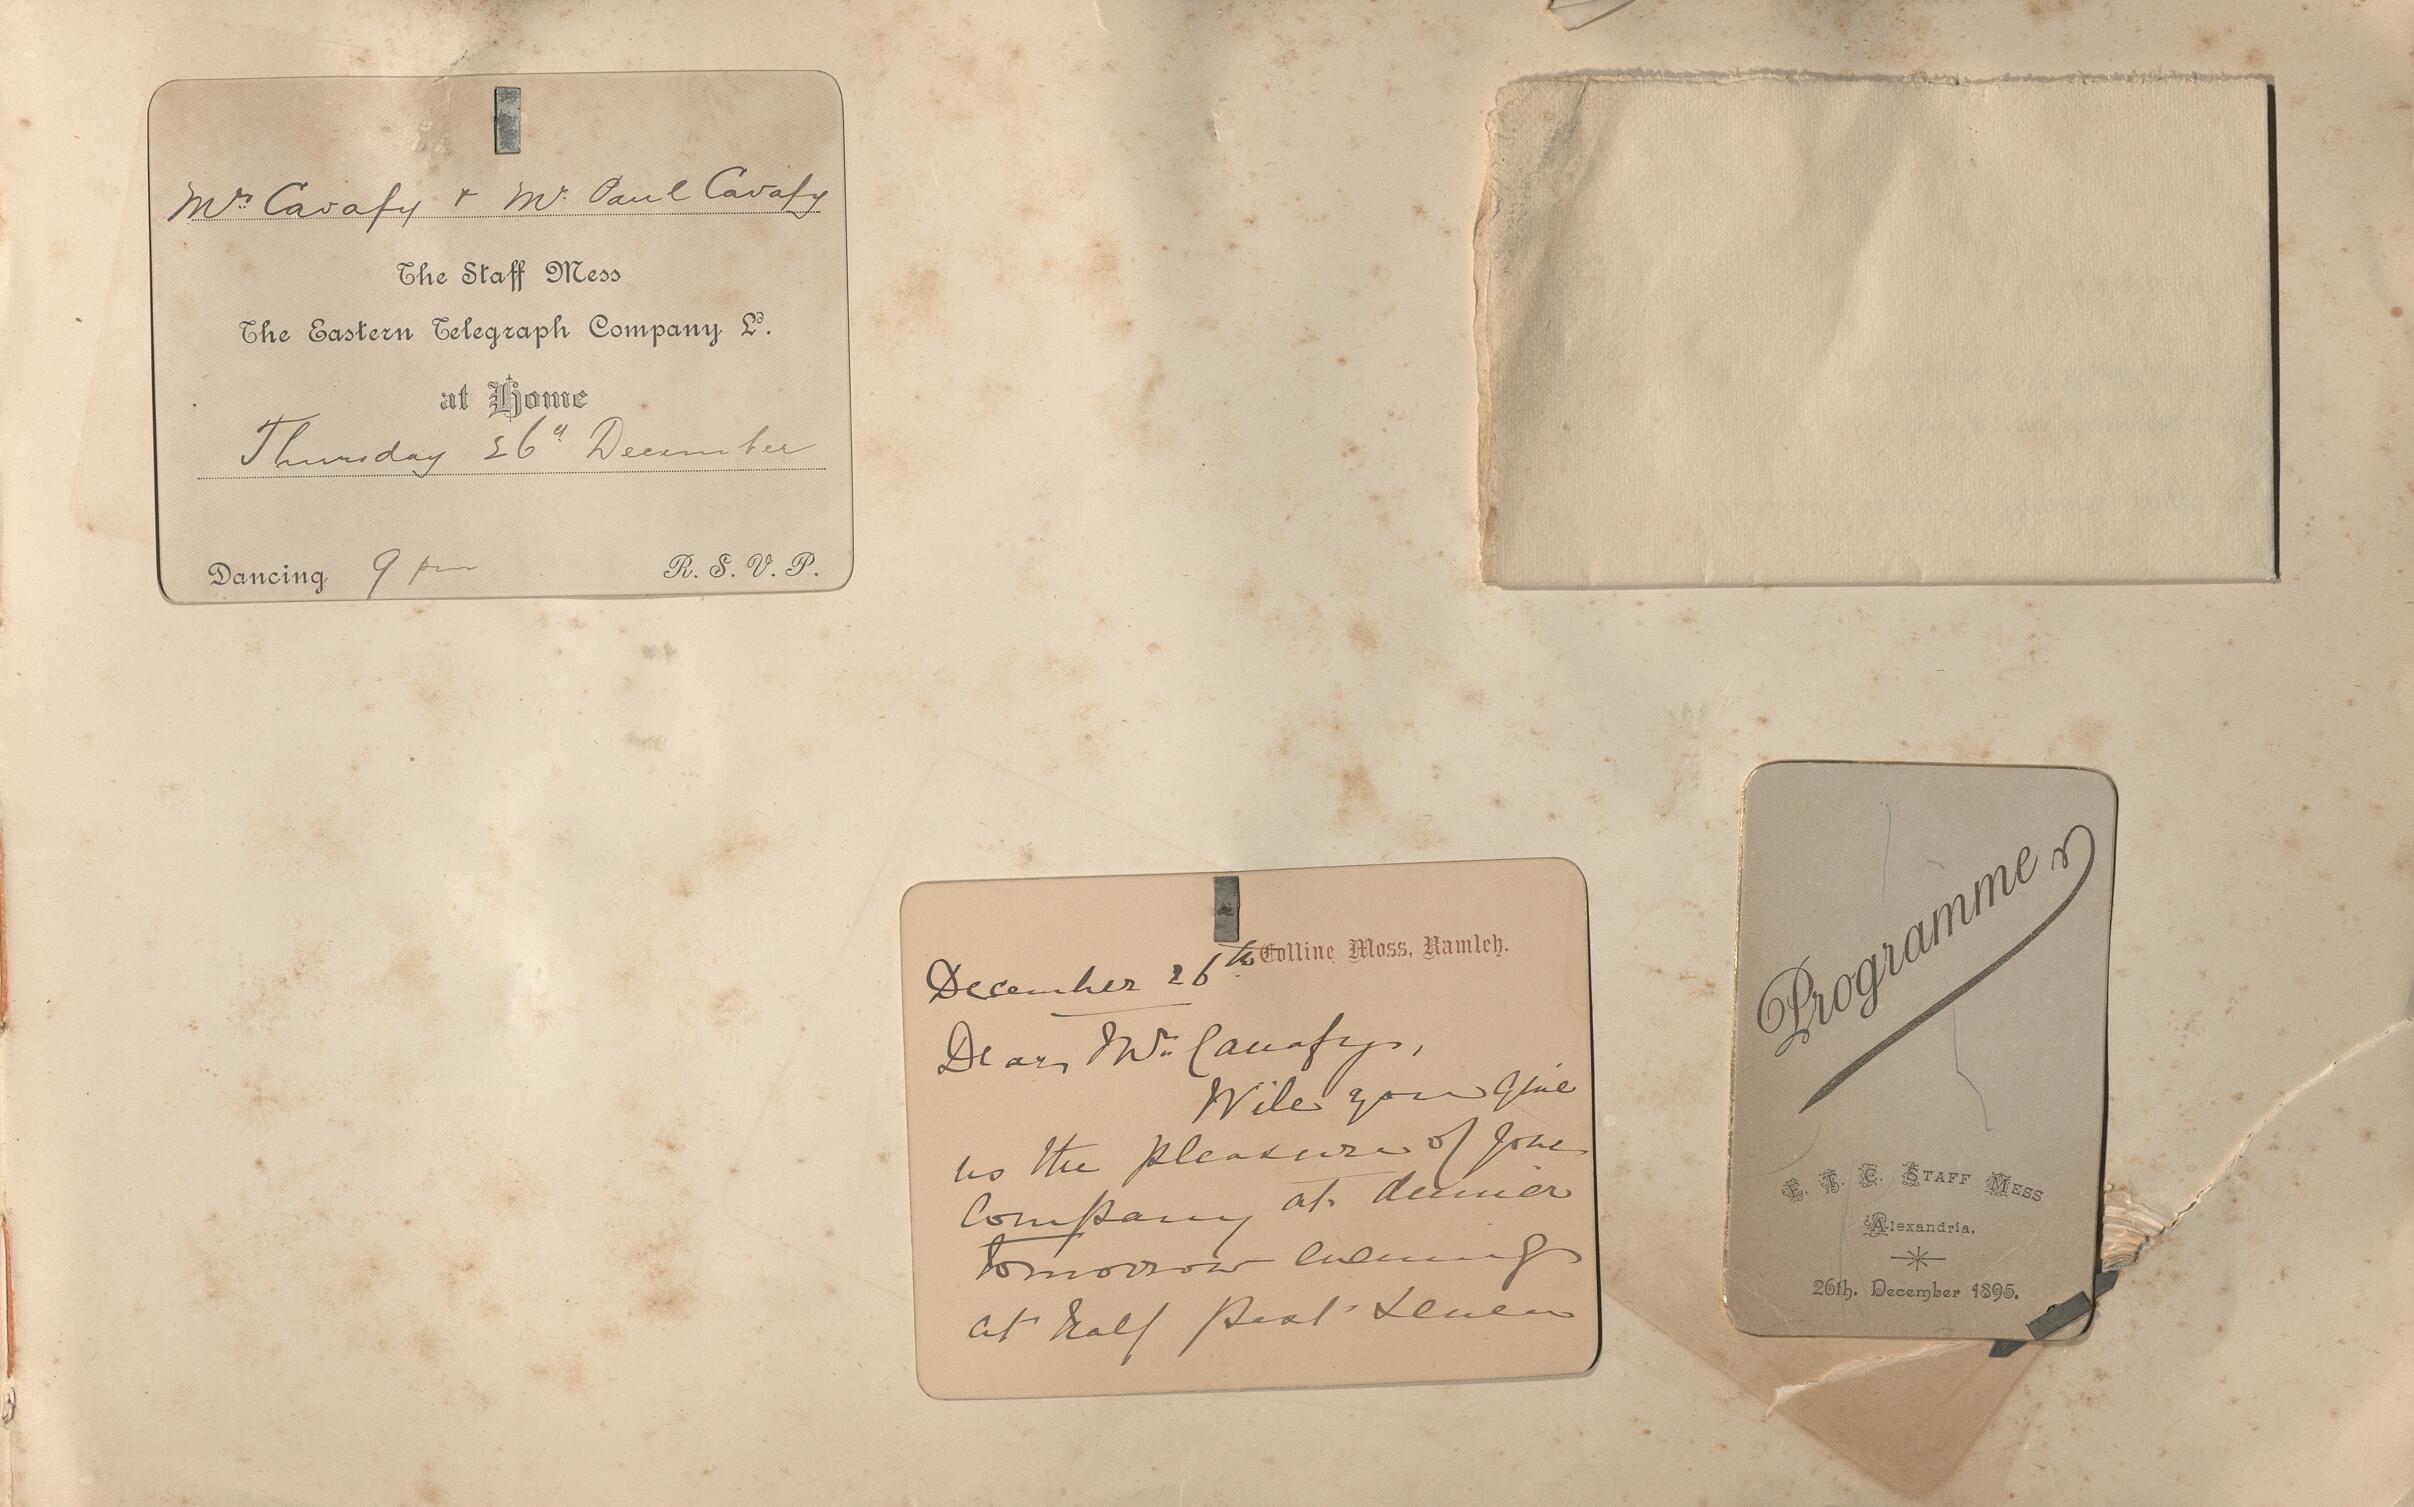 Mrs Cavafy & Mr. Paul Cavafy
The Staff Mess
The Eastern Telegraph Company Ld.
at Home
Thursday 26th December
Dancing 9 pm R. S. V. P.
Colline Moss, Ramleh.
December 26th
Dear Mrs Cavafy,
Will you give
us the pleasure of your
Company at dinner
tomorrow evening
at half past seven
Programme
E. T. C. Staff Mess
Alexandria,
26th. December 1895.